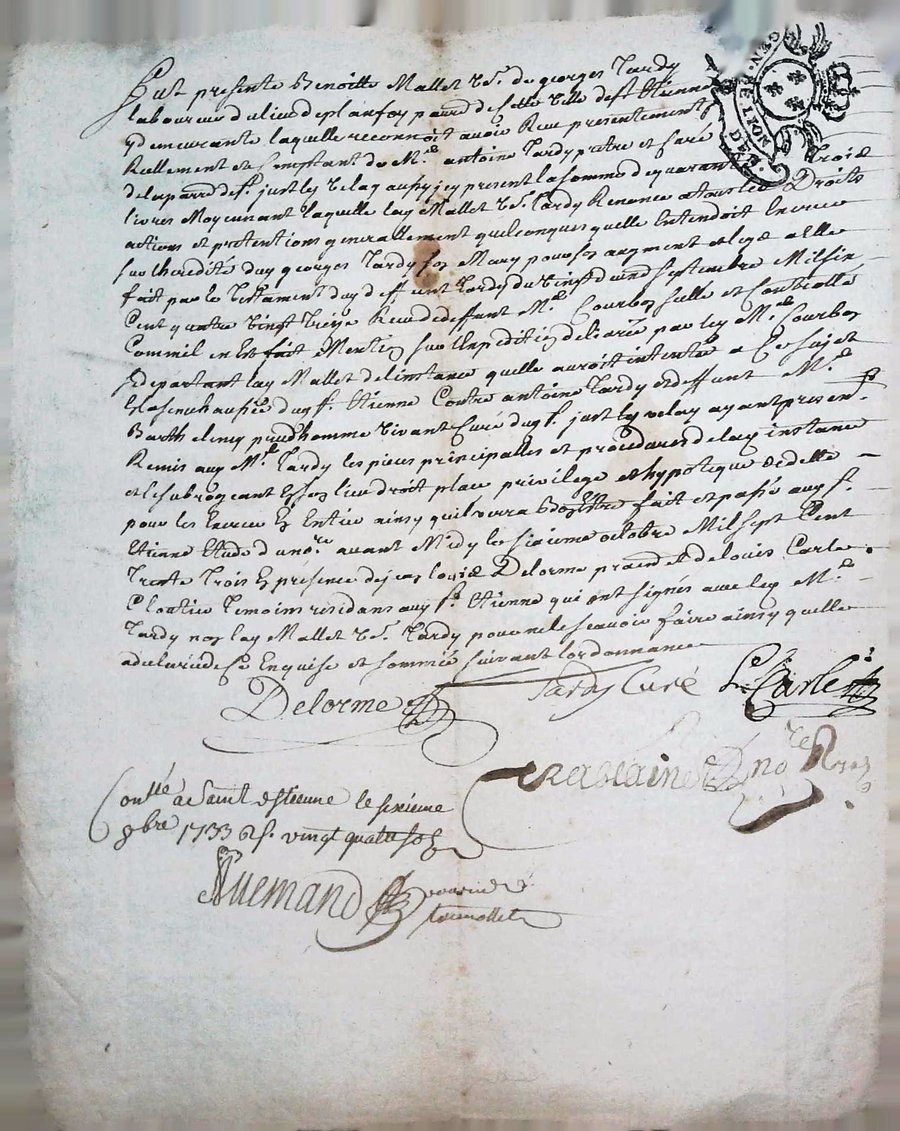 GEN. DE LYON
Fut presente Benoitte Mallet Vve. de georges Tardy
laboureur du lieu de planfoy parre de cette Ville de st. Etienne
y demeurante laquelle reconnoit avoir Reçu presentement
Reellement et Comptant de Mre. antoine Tardy pretre et Curé
de la parre de st. just les Velay aussy icy present la somme de quarante Trois
livres Moyennant laquelle lad. Mallet Vve. Tardy Renonce a tous les Droits
actions et pretentions generallement quelconques quelle Entendoit Exercer
sur lheredité dud. georges Tardy son Mary pour son augment et legs a elle
fait par le Testament dud. deffunt Tardy du Vingt deux septembre Mil six
Cent quatre Vingt Treize Reçu de deffunt Me. Courbon sellé et Controllé
Comme il en Est fait Mention sur lExpedition delivrée par led. Me. Courbon
se departant lad. Mallet de linstance quelle auroit intentée a Ce sujet
En la senechaussée dud. st. Etienne Contre antoine Tardy et deffunt Mre.
Barthelemy prudhomme Vivant Curé dud. st. just les velay ayant presen.
Remis aud. Mre. Tardy les pieces principalles et procedures de lad. instance
et le subrogeant En son lieu droit place privilege et hypoteque de dette
pour les Exercer En Entier ainsy quil verra bon Estre fait et passé aud. st.
Etienne Etude du nore. avant Midy le sixieme octobre Mil sept Cent
Trente Trois En presence de jean louis Delorme praen. et de louis Carle
Cloutier Temoins residans aud. st. Etienne qui ont signés avec led. Mre.
Tardy non lad. Mallet Vve. Tardy pour ne le sçavoir faire ainsy quelle
a declaré de ce Enquise et sommée suivant lordonnance
Delorme Tardy Curé L. Carle
nore Royal
Conllé a Saint estienne le sixieme
8bre 1733 R s. vingt quatre sols
Allemand